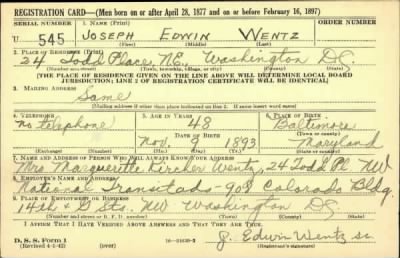 REGISTRATION CARD—(Men born on or after April 28, 1877 and on or before February 16, 1897)
SERIAL NUMBER
1. NAME (Print)
ORDER NUMBER
U 545 JOSEPH EDWIN WENTZ
(First) (Middle) (Last)
2. PLACE OF RESIDENCE (Print)
24 Todd Place, N.E., Washington D.C.
(Number and street) (Town, township, village, or city) (County) (State)
[THE PLACE OF RESIDENCE GIVEN ON THE LINE ABOVE WILL DETERMINE LOCAL BOARD
JURISDICTION; LINE 2 OF REGISTRATION CERTIFICATE WILL BE IDENTICAL]
3. MAILING ADDRESS
Same
[Mailing address if other than place indicated on line 2. If same insert word same]
4. TELEPHONE
5. AGE IN YEARS
6. PLACE OF BIRTH
no telephone
48
Baltimore
DATE OF BIRTH
(Town or county)
Nov. 9 1893
Maryland
(Exchange) (Number) (Mo.) (Day) (Yr.) (State or country)
7. NAME AND ADDRESS OF PERSON WHO WILL ALWAYS KNOW YOUR ADDRESS
Mrs Marguerette Kircher Wentz, 24 Todd Pl. NW
8. EMPLOYER'S NAME AND ADDRESS
National Transitads-908 Colorado Bldg.
9. PLACE OF EMPLOYMENT OR BUSINESS
14th & G Sts. NW Washington D.C.
(Number and street or R. F. D. number) (Town) (County) (State)
I AFFIRM THAT I HAVE VERIFIED ABOVE ANSWERS AND THAT THEY ARE TRUE.
D. S. S. Form 1
(Revised 4-1-42) (over)
J. Edwin Wentz sr
(Registrant's signature)